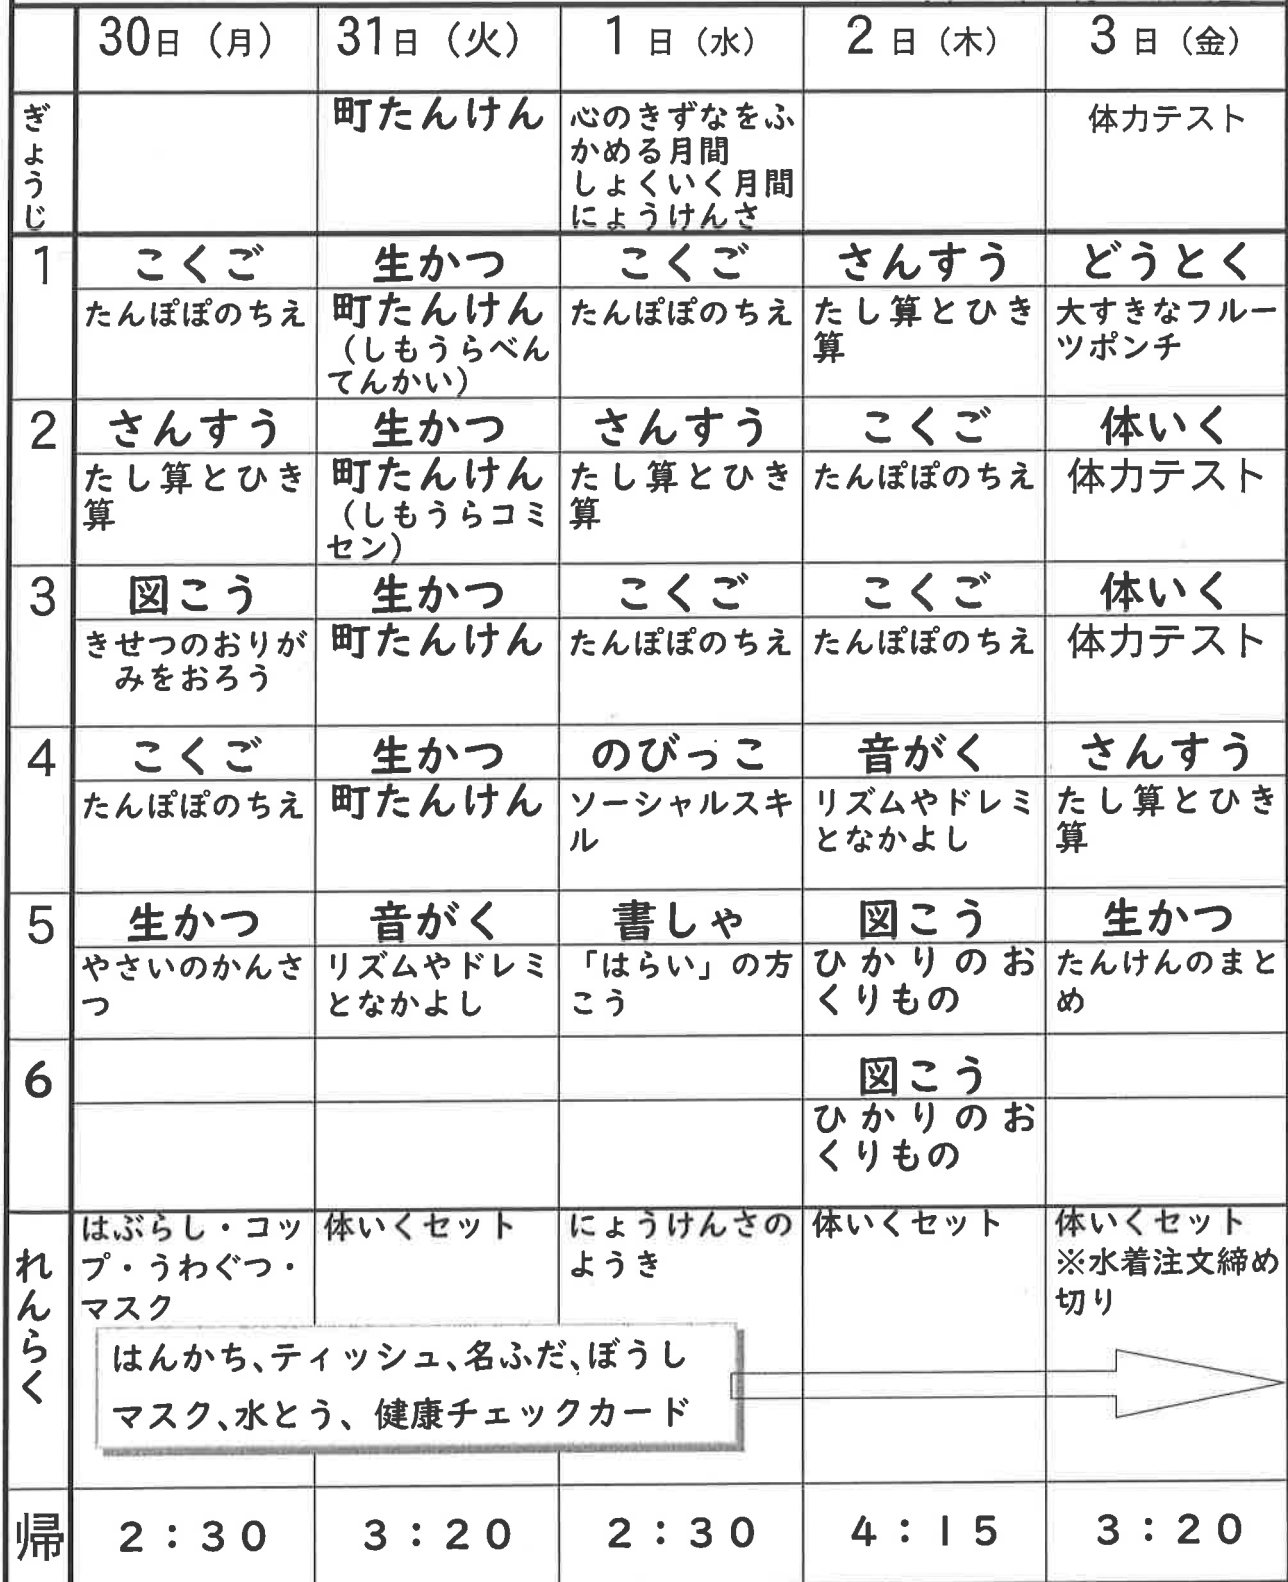 30日（月） 31日（火） 1日（水） 2日（木） 3日（金）
ぎょうじ
町たんけん
心のきずなをふ
かめる月間
しょくいく月間
にょうけんさ
体力テスト
1
こくご 生かつ こくご さんすう どうとく
たんぽぽのちえ
町たんけん
（しもうらべん
てんかい）
たんぽぽのちえ
たし算とひき
算
大すきなフルー
ツポンチ
2
さんすう 生かつ さんすう こくご 体いく
たし算とひき
算
町たんけん
（しもうらコミ
セン）
たし算とひき
算
たんぽぽのちえ
体力テスト
3
図こう 生かつ こくご こくご 体いく
きせつのおりが
みをおろう
町たんけん
たんぽぽのちえ
たんぽぽのちえ
体力テスト
4
こくご 生かつ のびっこ 音がく さんすう
たんぽぽのちえ
町たんけん
ソーシャルスキ
ル
リズムやドレミ
となかよし
たし算とひき
算
5
生かつ 音がく 書しゃ 図こう 生かつ
やさいのかんさ
つ
リズムやドレミ
となかよし
「はらい」の方
こう
ひかりのお
くりもの
たんけんのまと
め
6
図こう
ひかりのお
くりもの
れんらく
はぶらし・コッ
プ・うわぐつ・
マスク
体いくセット
にょうけんさの
ようき
体いくセット
体いくセット
※水着注文締め
切り
はんかち、ティッシュ、名ふだ、ぼうし
マスク、水とう、健康チェックカード
帰 2：30 3：20 2：30 4：15 3：20